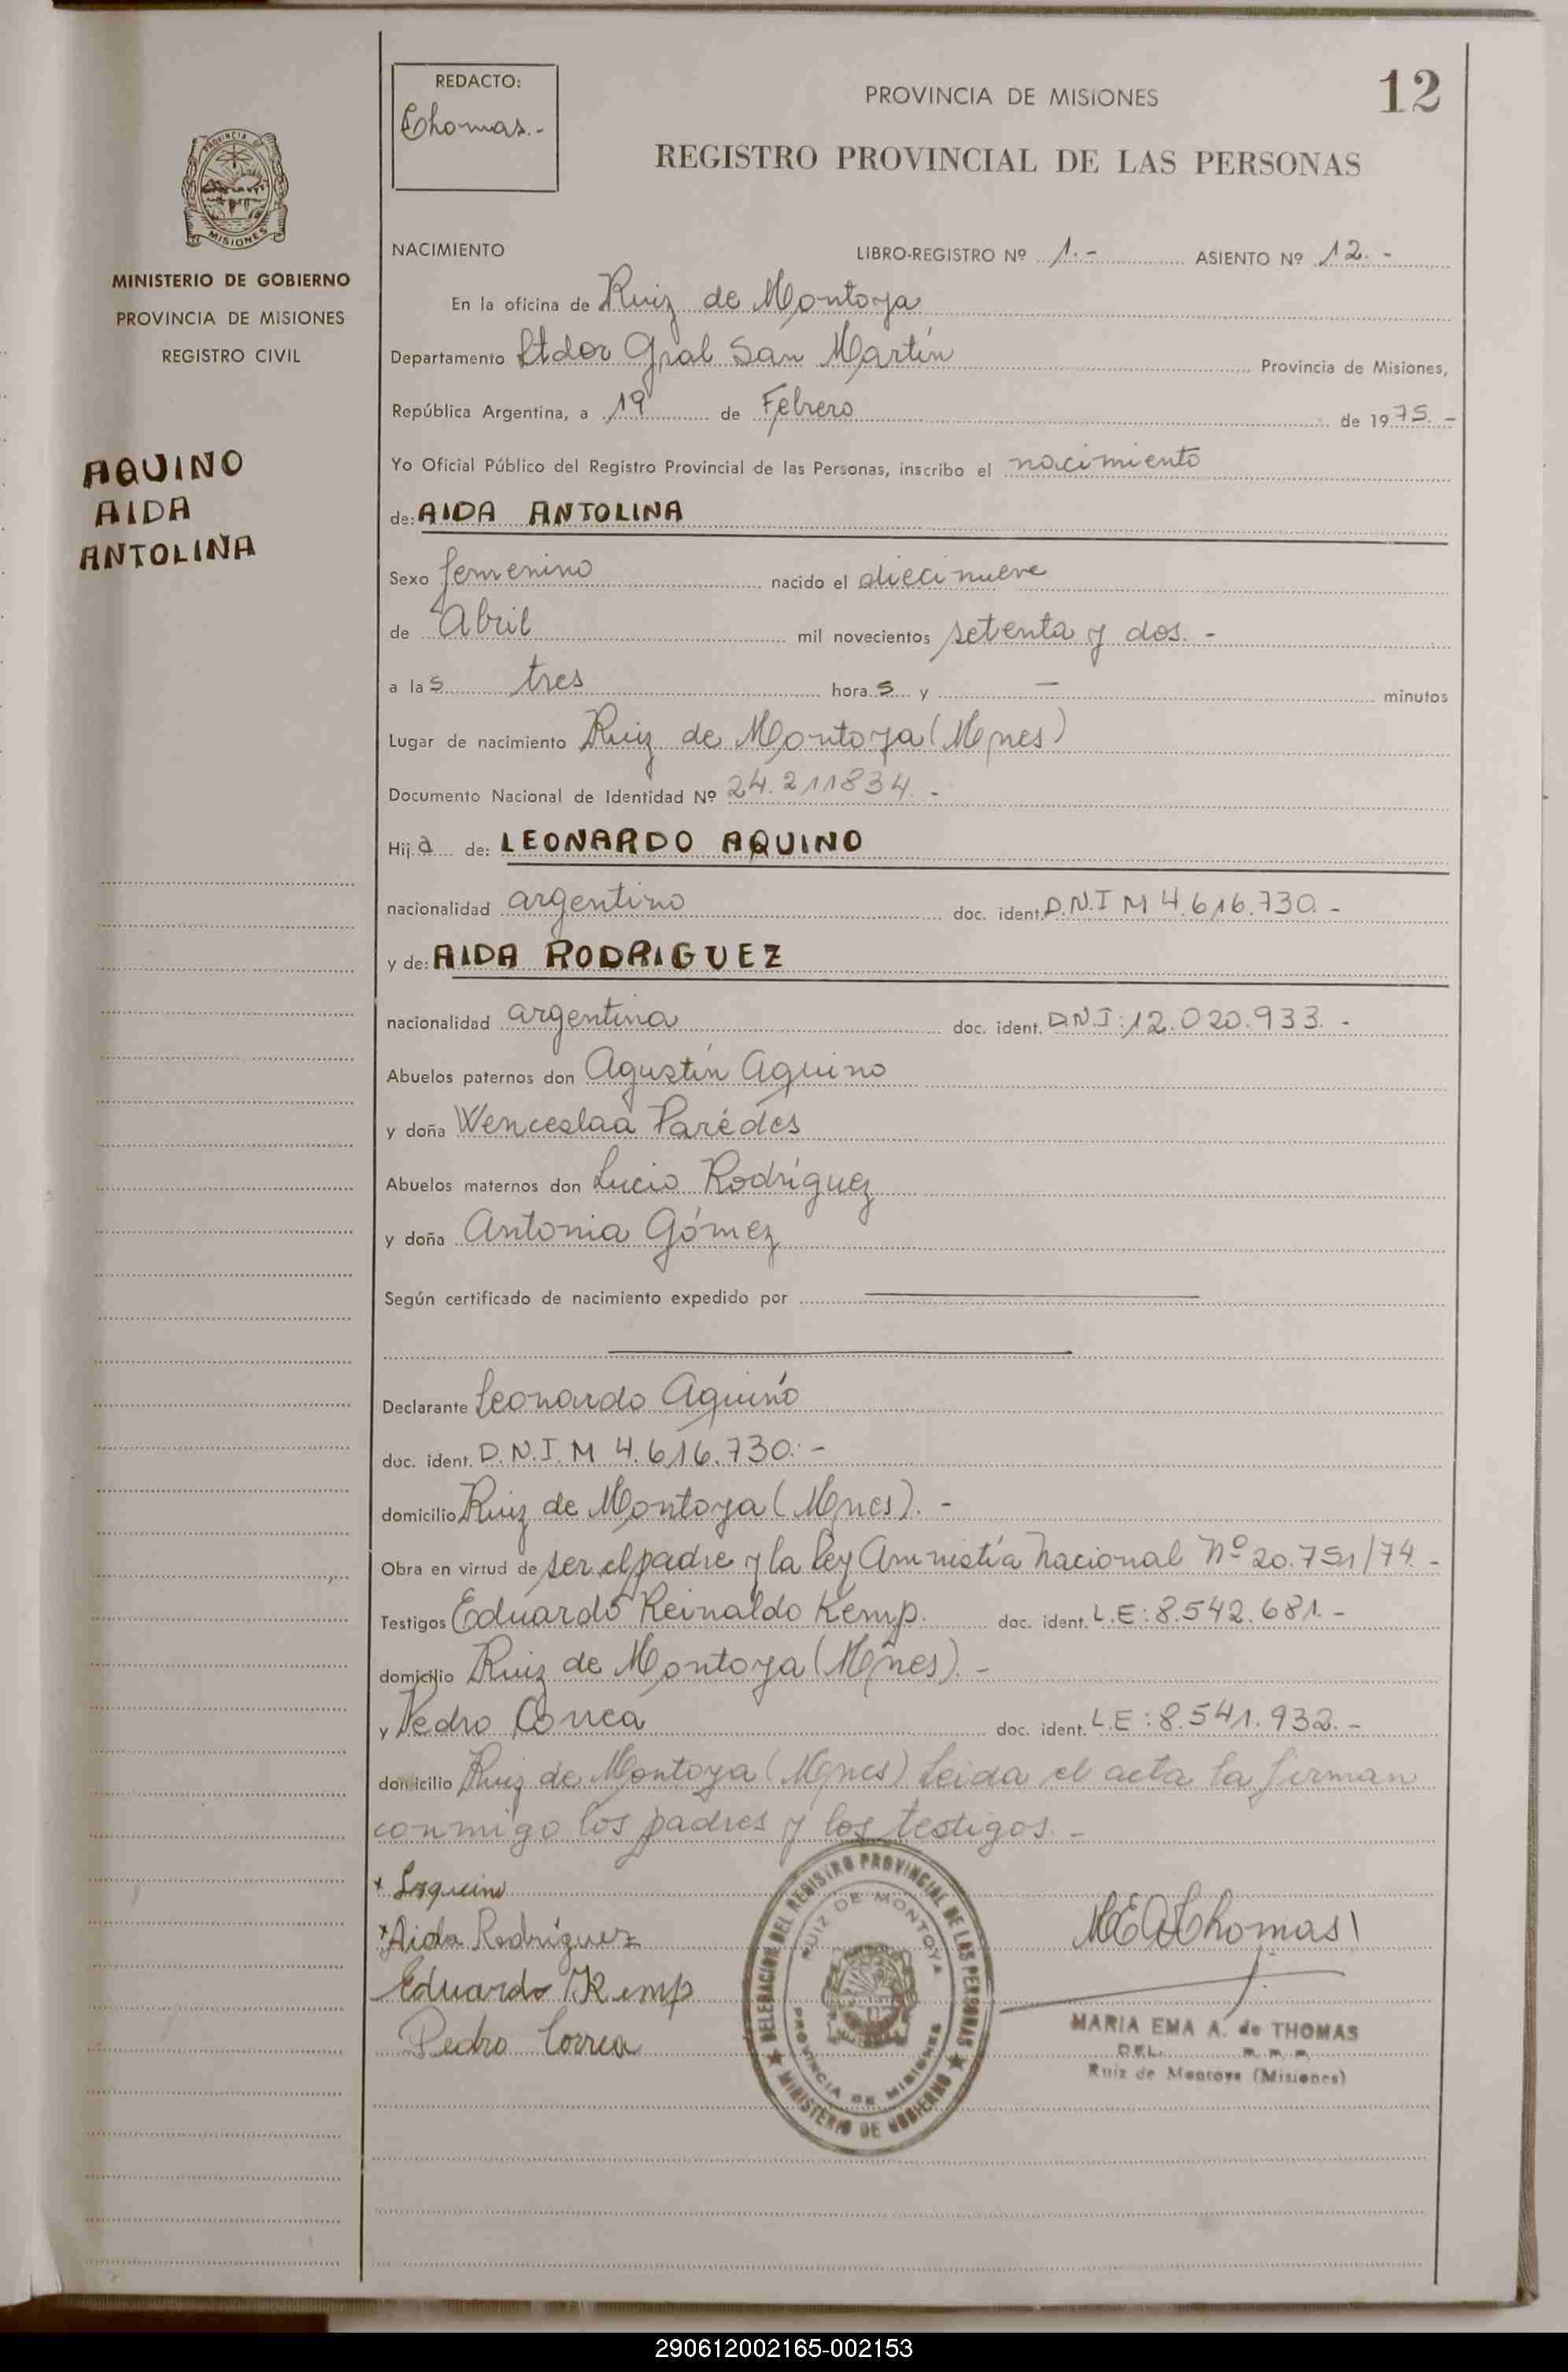 REDACTO:
Thomas.-
PROVINCIA DE MISIONES
12
REGISTRO PROVINCIAL DE LAS PERSONAS
PROVINCIA DE
MISIONES
MINISTERIO DE GOBIERNO
PROVINCIA DE MISIONES
REGISTRO CIVIL
AQUINO
AIDA
ANTOLINA
NACIMIENTO LIBRO-REGISTRO Nº 1.- ASIENTO Nº 12.-
En la oficina de Ruiz de Montoya
Departamento Ltdor Gral San Martín Provincia de Misiones,
República Argentina, a 19 de Febrero de 1975.-
Yo Oficial Público del Registro Provincial de las Personas, inscribo el nacimiento
de: AIDA ANTOLINA
Sexo femenino nacido el diecinueve
de Abril mil novecientos setenta y dos.-
a las tres horas y — minutos
Lugar de nacimiento Ruiz de Montoya (Mnes)
Documento Nacional de Identidad Nº 24.211834.-
Hija de: LEONARDO AQUINO
nacionalidad argentino doc. ident. D.N.I M 4.616.730.-
y de: AIDA RODRIGUEZ
nacionalidad argentina doc. ident. D.N.I: 12.020.933.-
Abuelos paternos don Agustín Aquino
y doña Wenceslaa Parédes
Abuelos maternos don Lucio Rodríguez
y doña Antonia Gómez
Según certificado de nacimiento expedido por
Declarante Leonardo Aquino
doc. ident. D.N.I. M 4.616.730.-
domicilio Ruiz de Montoya (Mnes).-
Obra en virtud de ser el padre y la Ley Amnistía Nacional Nº 20.751/74.-
Testigos Eduardo Reinaldo Kemp. doc. ident. L.E: 8.542.681.-
domicilio Ruiz de Montoya (Mnes).-
y Pedro Correa doc. ident. L.E: 8.541.932.-
domicilio Ruiz de Montoya (Mnes) Leida el acta la firman
conmigo los padres y los testigos.-
Aida Rodríguez
Eduardo R Kemp
Pedro Correa
DELEGACION DEL REGISTRO PROVINCIAL DE LAS PERSONAS
RUIZ DE MONTOYA
PROVINCIA DE MISIONES
MINISTERIO DE GOBIERNO
MEAThomas
MARIA EMA A. de THOMAS
DEL.
Ruiz de Montoya (Misiones)
290612002165-002153